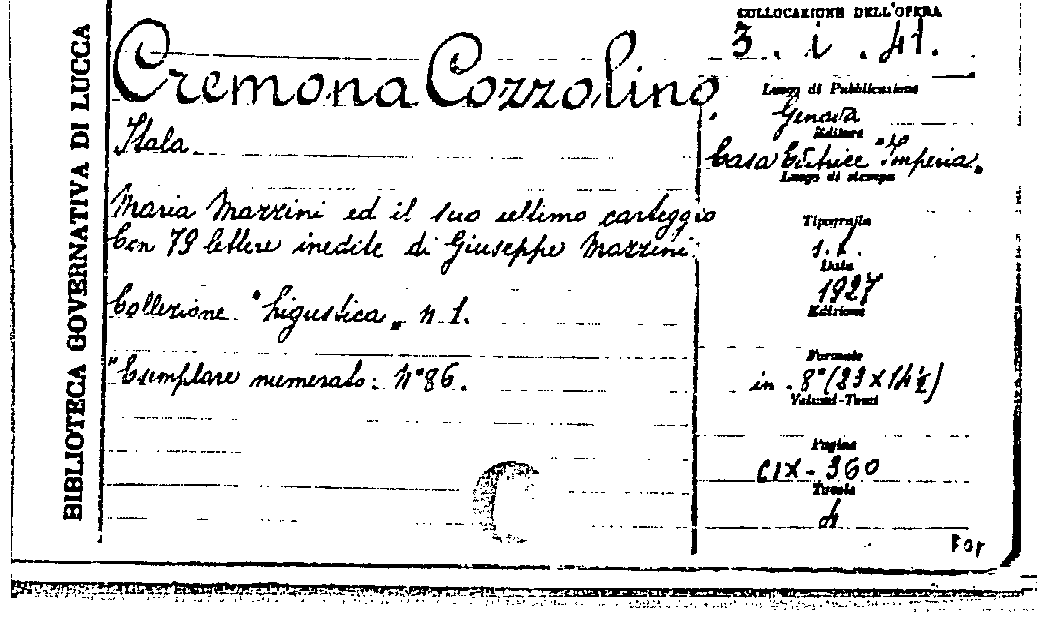 BIBLIOTECA GOVERNATIVA DI LUCCA
Cremona Cozzolino,
Itala
Maria Mazzini ed il suo ultimo carteggio
Con 79 lettere inedite di Giuseppe Mazzini.
Collezione "Ligustica„ n 1.
"Esemplare numerato: N° 86.
COLLOCAZIONE DELL'OPERA
3. i. 41.
Luogo di Pubblicazione
Genova
Editore
Casa Editrice "Imperia„
Luogo di stampa
Tipografia
s. t.
Data
1927
Edizione
Formato
in. 8° (23 x 14½)
Volumi-Tomi
Pagine
CIX - 360
Tavole
4
For